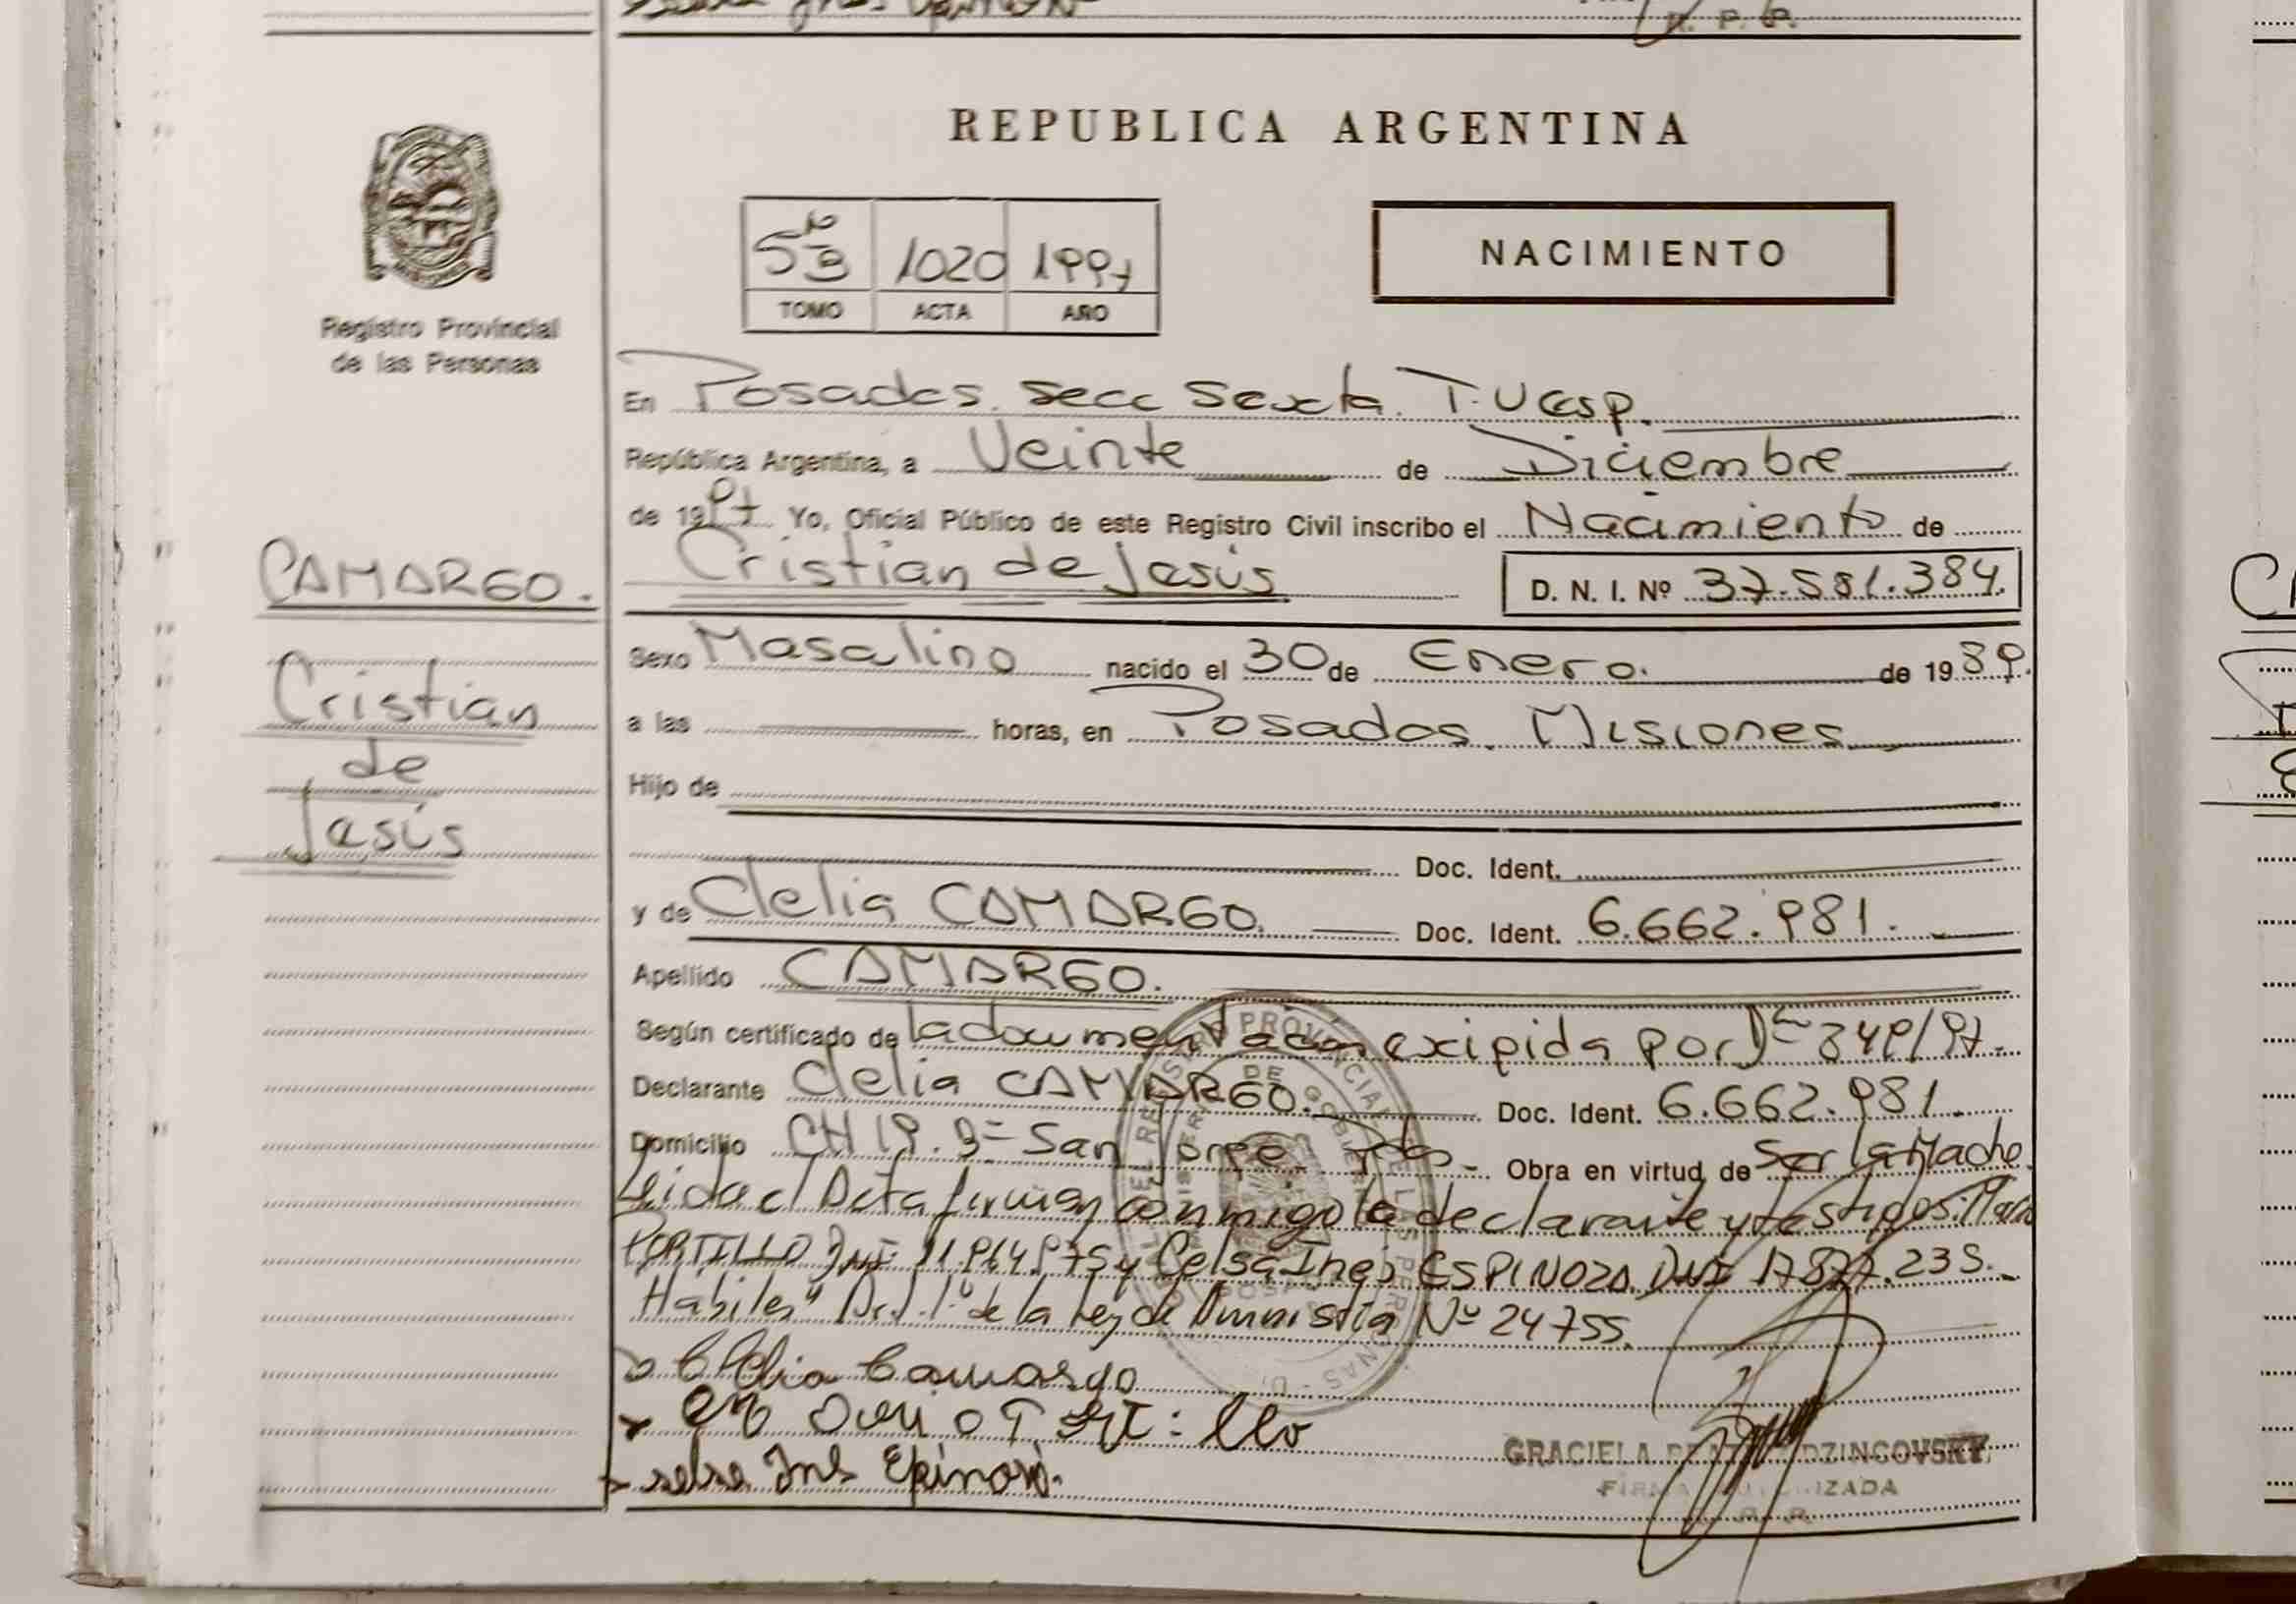 REPUBLICA ARGENTINA
Registro Provincial
de las Personas
1020 1997
TOMO ACTA AÑO
NACIMIENTO
En Posadas. Secc Sexta. T.U
República Argentina, a Veinte de Diciembre
de 1997 Yo, Oficial Público de este Registro Civil inscribo el Nacimiento de
Cristian de Jesús D. N. I. Nº 37.581.384.
CAMARGO.
Cristian
de
Jesús
Sexo Masculino nacido el 30 de Enero. de 1989.
a las horas, en Posadas. Misiones
Hijo de
Doc. Ident.
y de Clelia CAMARGO. Doc. Ident. 6.662.981.
Apellido CAMARGO.
Según certificado de la documentación exigida por 349/97.
Declarante Clelia CAMARGO. Doc. Ident. 6.662.981.
Domicilio CH 19. San Jorge. Pdas. Obra en virtud de Ser la Madre.
Leida el Acta firman conmigo la declarante y testigos:
PORTILLO DNI 11.964.975 y Celsa Inés ESPINOZA. DNI 17827.235.
Habiles" de la Ley de Amnistia Nº 24755.
Clelia Camargo
GRACIELA
FIRMA AUTORIZADA